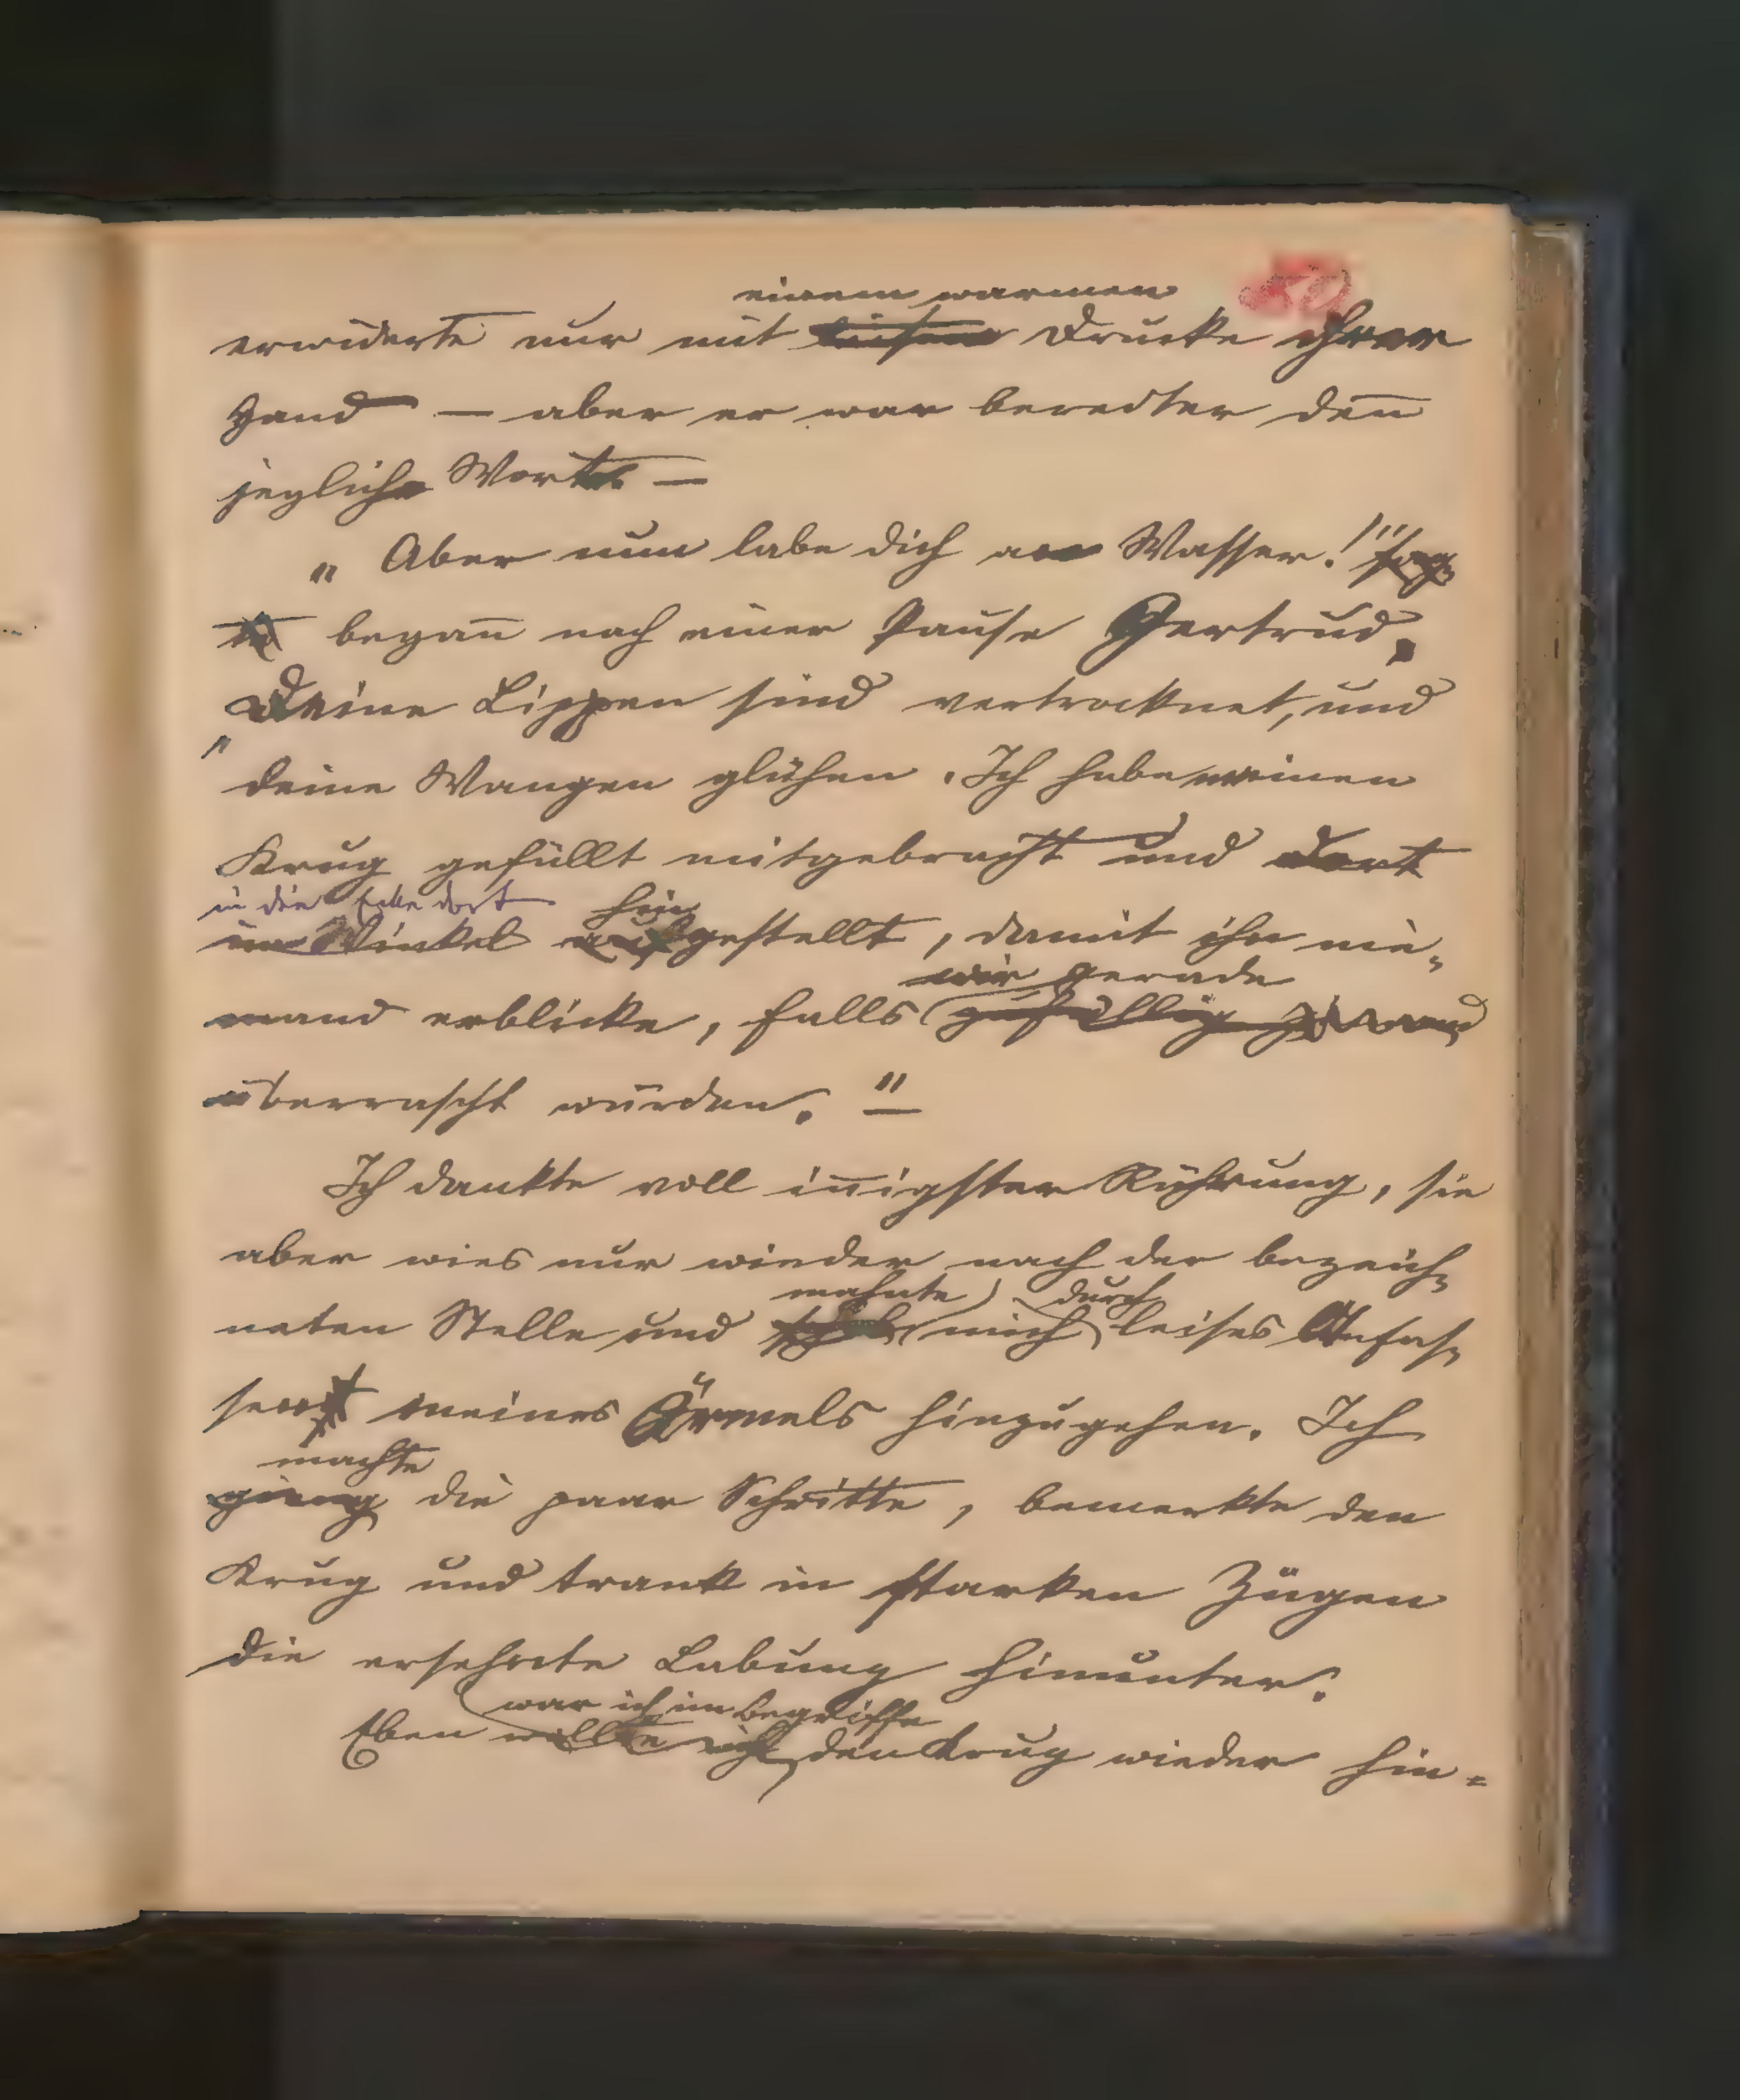 50
einem warmen
erwiderte nur mit leisem Drucke ihrer
Hand — aber er war beredter deñ
jegliche Worte —
„Aber nun labe dich am Wasser!" sag-
te begañ nach einer Pause Gertrud.
„Deine Lippen sind vertrocknet, und
deine Wangen glühen. Ich habe meinen
Krug gefüllt mitgebracht und dort
in die Ecke dort hin
im Winkel aufgestellt, damit ihn nie-
wir gerade
mand erblicke, falls zufällig
überrascht würden."
Ich dankte voll iñigster Rührung, sie
aber wies nur wieder nach der bezeich-
mahnte durch
neten Stelle und schob mich leises Anfas-
sen meines Ärmels hinzugehen. Ich
machte
gieng die paar Schritte, bemerkte den
Krug und trank in starken Zügen
die ersehnte Labung hinunter.
war ich im Begriffe
Eben wollte ich den Krug wieder hin-